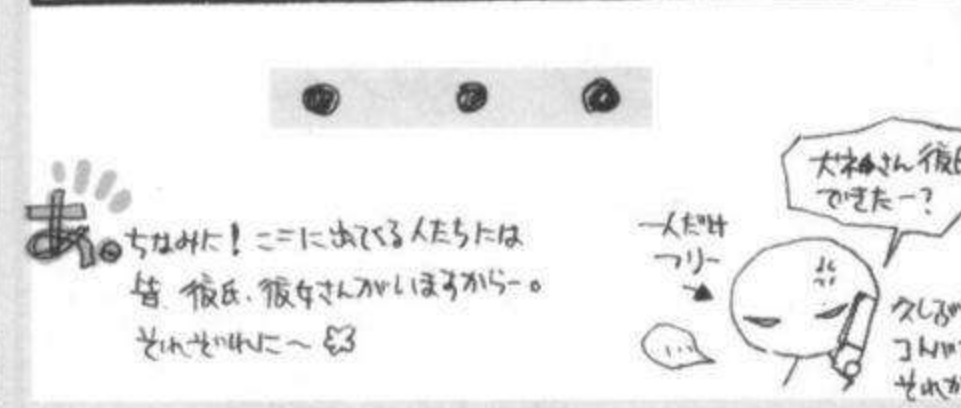 あ。
ちなみに！ここに出てくる人たちには
皆、彼氏、彼女さんがいますからー。
それぞれに〜
一人だけ
フリー
犬神さん彼氏
できたー？
…
久しぶ
それが